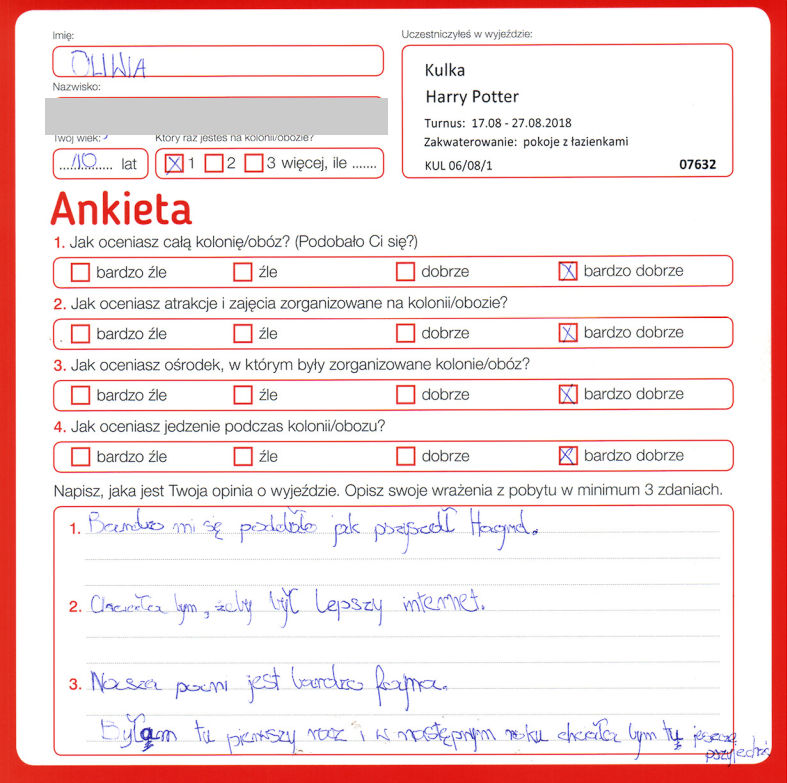 Imię:
OLIWIA
Nazwisko:
Twój wiek:
10 lat
Który raz jesteś na kolonii/obozie?
1 2 3 więcej, ile .......
Uczestniczyłeś w wyjeździe:
Kulka
Harry Potter
Turnus: 17.08 - 27.08.2018
Zakwaterowanie: pokoje z łazienkami
KUL 06/08/1 07632
Ankieta
1. Jak oceniasz całą kolonię/obóz? (Podobało Ci się?)
bardzo źle źle dobrze bardzo dobrze
2. Jak oceniasz atrakcje i zajęcia zorganizowane na kolonii/obozie?
bardzo źle źle dobrze bardzo dobrze
3. Jak oceniasz ośrodek, w którym były zorganizowane kolonie/obóz?
bardzo źle źle dobrze bardzo dobrze
4. Jak oceniasz jedzenie podczas kolonii/obozu?
bardzo źle źle dobrze bardzo dobrze
Napisz, jaka jest Twoja opinia o wyjeździe. Opisz swoje wrażenia z pobytu w minimum 3 zdaniach.
1. Bardzo mi się podobało jak przyszedł Hagrid.
2. Chciała bym, żeby był lepszy internet.
3. Nasza pani jest bardzo fajna.
Byłam tu pierwszy raz i w następnym roku chciała bym tu jeszcze
przyjechać